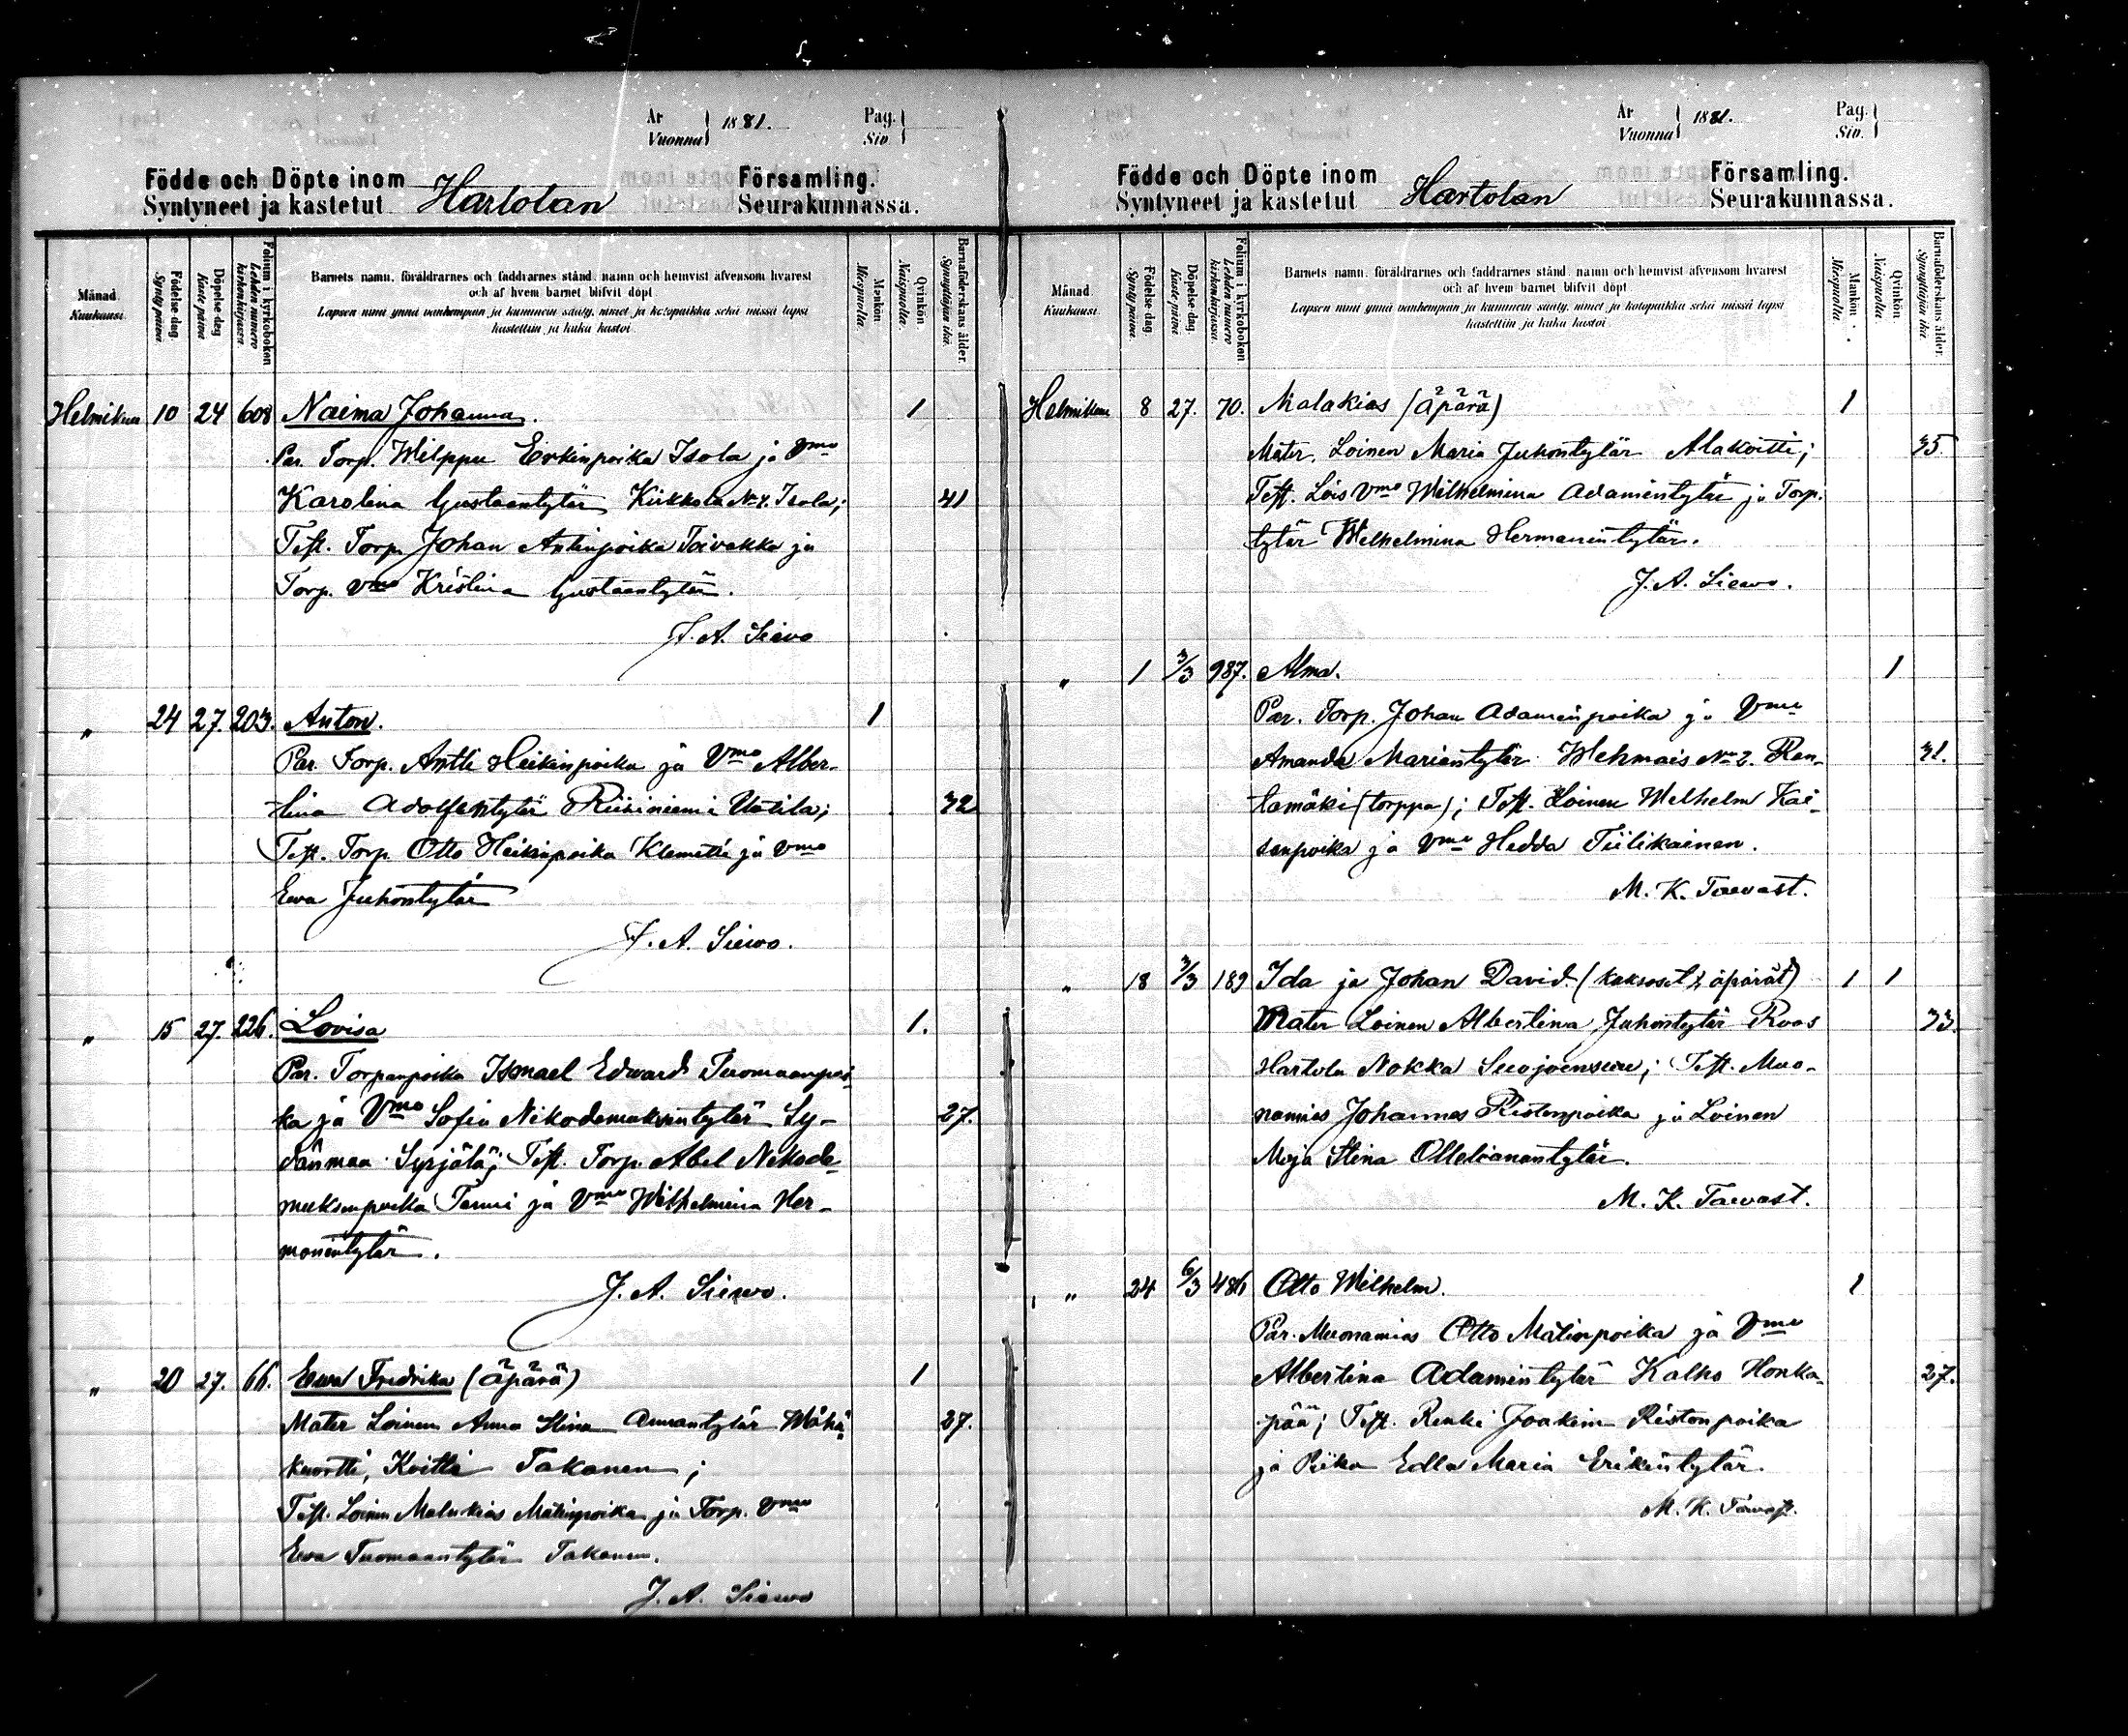 År
Vuonna 1881.
Pag.
Siv.
Födde och Döpte inom Församling.
Syntyneet ja kastetut Hartolan Seurakunnassa.
Månad.
Kuukausi.
Födelse dag.
Synty päivä.
Döpelse dag.
Kaste päivä.
Folium i kyrkoboken
Lehden numero kirkonkirjassa.
Barnets namn, föräldrarnes och faddrarnes stånd, namn och hemvist äfvensom hvarest
och af hvem barnet blifvit döpt.
Lapsen nimi ynnä vanhempain ja kummein sääty, nimet ja kotopaikka sekä missä lapsi
kastettiin ja kuka kastoi.
Mankön.
Miespuolta.
Qvinkön.
Naispuolta.
Barnaföderskans ålder.
Synnyttäjän ikä.
Helmikuu 10 24 608 Naima Johanna. 1
Par. Torp. Wilppu Erkinpoika Isola ja Vmo
Karolina Gustaantytär Kirkkola No 4. Isola; 41
Test. Torp. Johan Antinpoika Toivakka ja
Torp. Vmo Kristina Gustaantytär.
J. A. Siewo
" 24 27. 203. Anton. 1
Par. Torp. Antti Heikinpoika ja Vmo Alber-
tina Adolfentytär Riihiniemi Uotila; 32
Test. Torp. Otto Heikinpoika Klemetti ja Vmo
Ewa Juhontytär
J. A. Siewo.
" 15 27. 226. Lovisa 1.
Par. Torpanpoika Ismael Edward Tuomaanpoi
ka ja Vmo Sofia Nikodemuksentytär Sy- 27.
dänmaa Syrjälä; Test. Torp. Abel Nikode-
muksenpoika Termi ja Vmo Wilhelmina Her-
manintytär.
J. A. Siewo.
" 20 27. 66. Ewa Fredrika (äpärä) 1
Mater Loinen Anna Stina Annantytär Wähä 27.
kuortti, Koitti Takanen;
Test. Loinen Malakias Matinpoika ja Torp. Vmo
Ewa Tuomaantytär Takanen.
J. A. Siewo
År
Vuonna 1881.
Pag.
Siv.
Födde och Döpte inom Församling.
Syntyneet ja kastetut Hartolan Seurakunnassa.
Månad.
Kuukausi.
Födelse dag.
Synty päivä.
Döpelse dag.
Kaste päivä.
Folium i kyrkoboken
Lehden numero kirkonkirjassa.
Barnets namn, föräldrarnes och faddrarnes stånd, namn och hemvist äfvensom hvarest
och af hvem barnet blifvit döpt.
Lapsen nimi ynnä vanhempain ja kummein sääty, nimet ja kotopaikka sekä missä lapsi
kastettiin ja kuka kastoi.
Mankön.
Miespuolta.
Qvinkön.
Naispuolta.
Barnaföderskans ålder.
Synnyttäjän ikä.
Helmikuu 8 27. 70. Malakias (äpärä) 1
Mater. Loinen Maria Juhontytär Alakoitti; 35.
Test. Lois Vmo Wilhelmina Adamintytär ja Torp.
tytär Wilhelmina Hermanintytär.
J. A. Siewo.
" 1 3/3 987. Alma. 1
Par. Torp. Johan Adaminpoika ja Vmo
Amanda Mariantytär Wehmais No 2. Ran- 31.
tamäki (torppa); Test. Loinen Wilhelm Kai-
sanpoika ja Vmo Hedda Tiilikainen.
M. K. Tawast.
" 18 3/3 189 Ida ja Johan David (kaksoset, äpärät) 1 1
Mater Loinen Albertina Juhontytär Roos 33.
Hartola Nokka Suojoensuu; Test. Muo-
namies Johannes Ristonpoika ja Loinen
Maja Stina
M. K. Tawast.
" 24 6/3 486 Otto Wilhelm. 1
Par. Muonamies Otto Matinpoika ja Vmo
Albertina Adamintytär Kalho Honka- 27.
pää; Test. Renki Joakim Ristonpoika
ja Piika Edla Maria Erikintytär.
M. K. Tawast.